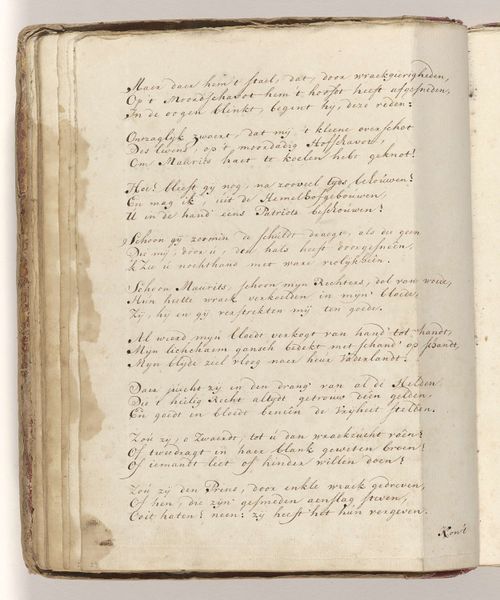 Maer daer hem 't stael, dat, door wraekgierigheden,
Op 't Moordschavot hem 't hooft heeft afgesneden,
In de oogen blinkt, begint hy, deze reden:
Onzaglyk zwaert, dat my, 't kleene overschot
Des levens, op 't moordadig Hofschavot,
Om Maurits haet te koelen hebt geknot!
Hoe! bleeft gy nog, na zooveel tyds behouwen?
En mag ik, uit de Hemelhofgebouwen,
U in de hand eens Patriots beschouwen?
Schoon gy zoomin de schuldt draegt, als die geen
Die my, door u, den hals heeft doorgesneên,
'k Zie u nochthand met ware vrolykheên.
Schoon Maurits, schoon myn Rechters, dol van woede,
Hun heete wraek verkoelden in myn bloede,
Zy, hy en gy verstrekten my ten goede.
Al werd myn bloedt verkogt van hand tot handt,
Myn lichchaem gansch bedekt met schand' op schandt,
Myn blyde ziel vloog naer heur Vaderlandt.
Daer juicht zy in den drang van al de Helden
Die 't heilig Recht altydt getrouw deên gelden
En goedt en bloedt beneên de Vryheit stelden.
Zou zy, o Zwaerdt, tot u dan wraekzucht voên?
Of tweedragt in haer blank geweten broên?
Of iemandt leet of hinder willen doen?
Zou zij den Prins, door enkle wraek gedreven,
Of hen, die zyn gesmeden aenslag steven,
Ooit haten? neen: zy heeft het hun vergeven.
Kon't